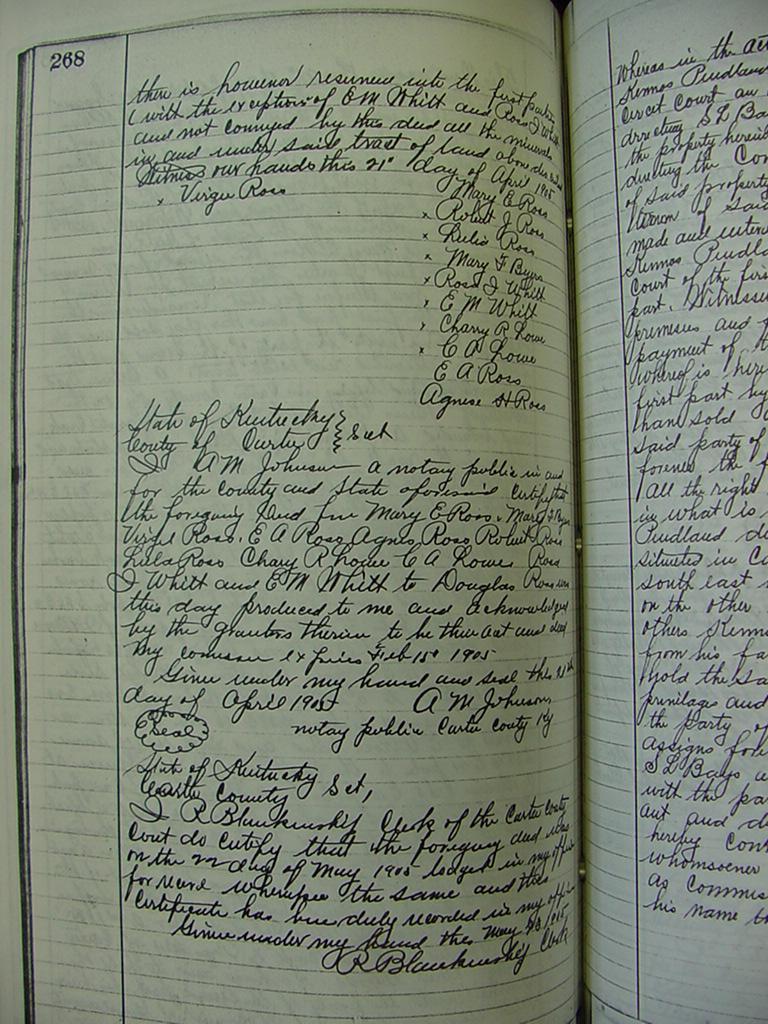 268
there is however reserved into the first parties
(with the exception of E M Whitt and Rosa J Whitt
and not conveyed by this deed all the minerals
in and under said tract of land above described
Witness our hands this 21st day of April 1905
x Virgie Ross
Mary E Ross
x Robert J Ross
x Lulie Ross
x Mary F Byers
x Rosa J Whitt
x E M Whitt
x Charry R Lowe
x C A Lowe
E A Ross
Agnise H Ross
State of Kentucky
County of Carter } Sct
I A M Johnson a notary public in and
for the County and State aforesaid certify that
the foregoing deed from Mary E Ross, Mary F Byers
Virgie Ross, E A Ross Agnes Ross Robert Ross
Lula Ross Chary R Lowe C A Lowe Rosa
J Whitt and E M Whitt to Douglas Ross was
this day produced to me and acknowledged
by the grantors therein to be their act and deed
My comission expires Feb 15th 1905
Given under my hand and seal this 21st
day of April 1905 A M Johnson
Seal notary public Carter County Ky
State of Kentucky
Carter County Sct,
I R Blankenship Clerk of the Carter County
Court do certify that the foregoing deed was
on the 22 day of May 1905 lodged in my office
for record whereupon the same and this
Certificate has been duly recorded in my office
Given under my hand this May 23/05
R Blankenship Clerk
Whereas in the
Kennos Prudland
Circuit Court
directing S L
the property
directing the
of said property
of said
made and
Kennos
Court of the
part. Witnesseth
premises and
payment of
whereof is
first part
have sold
said party of
forever the
All the right
in what is
Prudland
situated in
south east
on the other
others Kennos
from his
hold the
privilages and
the party of
assigns
S L Bays
with the
act and
hereby
whomsoever
as Commis
his name